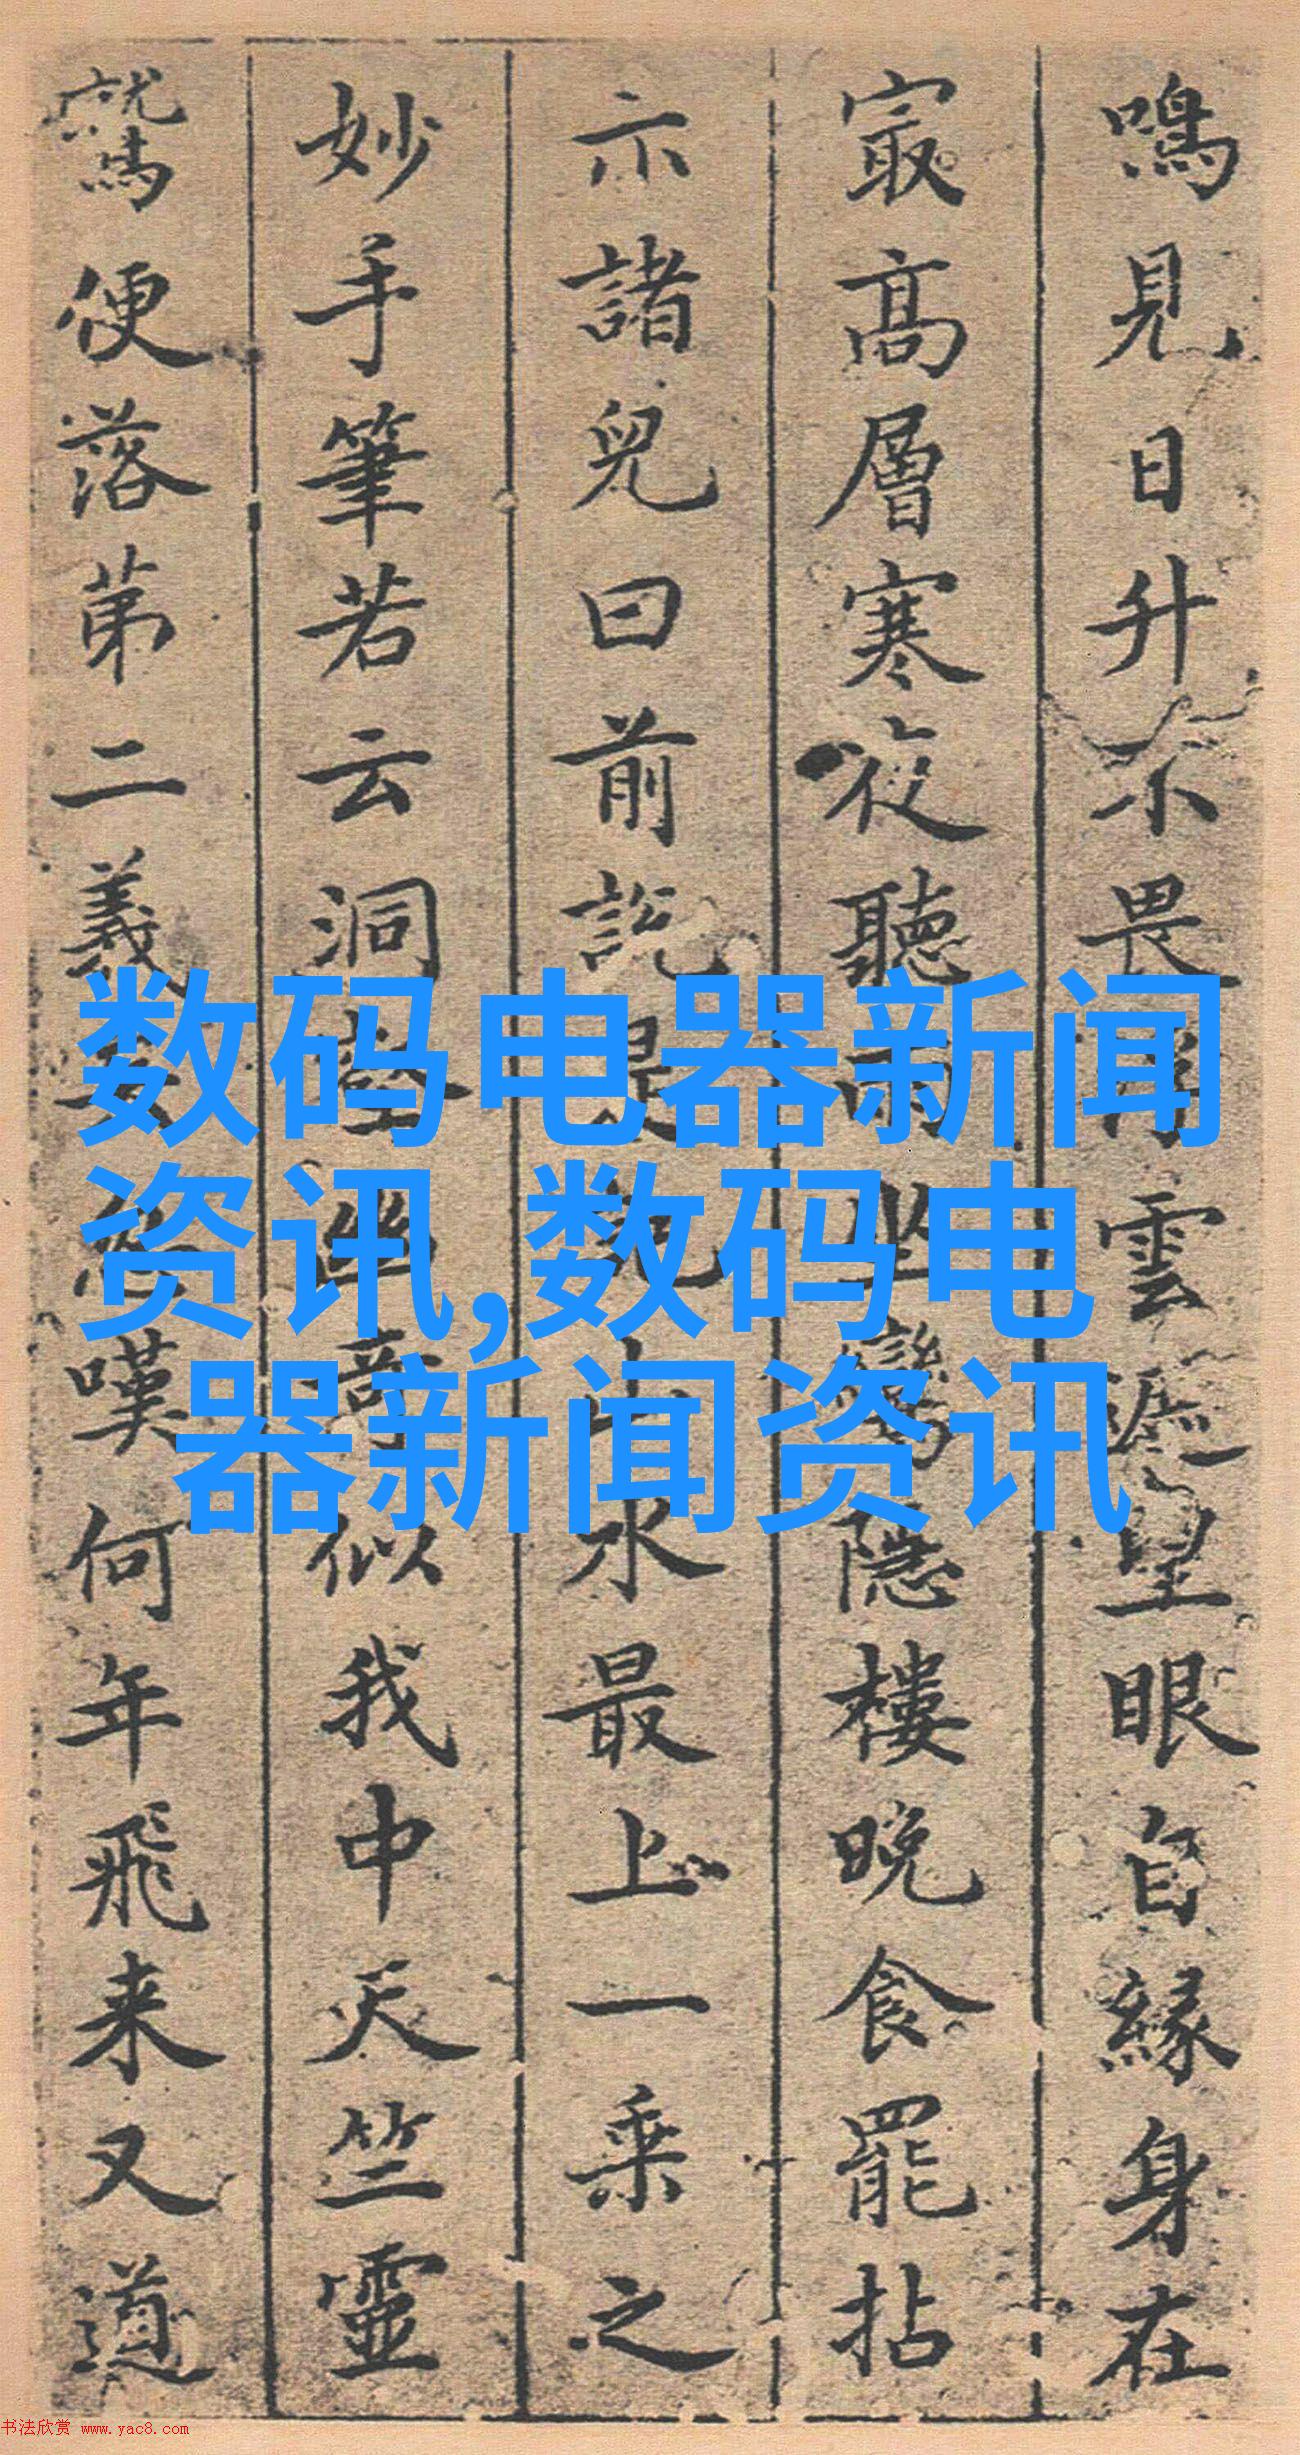 数码电器新闻
资讯,数码电
器新闻资讯
鳴見日升不畏雲遮望眼自緣身在
㝡高層寒夜聽隱樓晚食罷拈
示諸兒曰前説是水最上一乘之
妙手筆若云洞幽奇似我中天竺靈
鷲便落第二義嘆何年飛来又道
书法欣赏 www.yac8.com